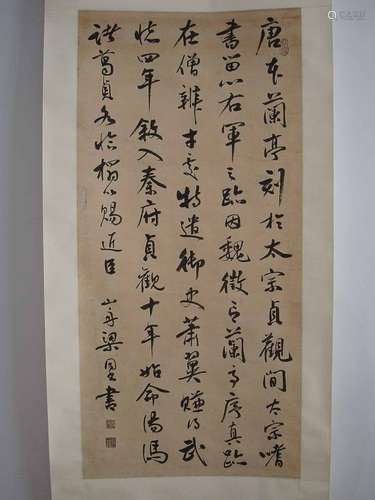 唐本蘭亭刻於太宗貞觀間太宗嗜
書留心右軍之跡因魏徵言蘭亭序真跡
在僧辯才處特遣御史蕭翼賺得武
德四年敘入秦府貞觀十年始命湯馮
諸葛貞各臨榻以賜近臣 山舟梁同書